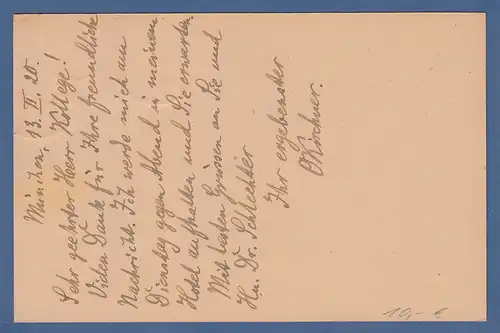 München, 13. II. 20.
Sehr geehrter Herr Kollege!
Vielen Dank für Ihre freundliche
Nachricht. Ich werde mich am
Dienstag gegen Abend in meinem
Hotel aufhalten und Sie erwarten.
Mit besten Grüssen an Sie und
Hn. Dr. Schlechter
Ihr ergebenster
OKirchner.
10,- €